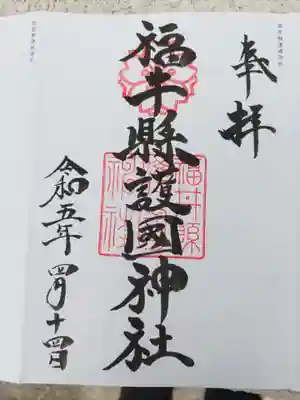 奉拝
福井縣護國神社
福井縣護國神社
令和五年四月十四日